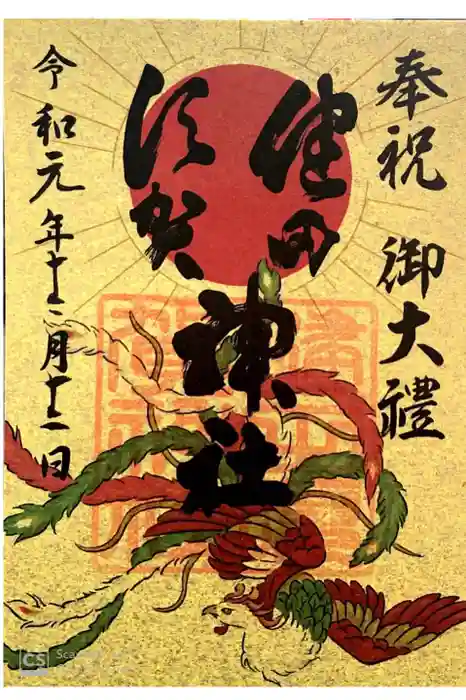 奉祝 御大禮
健田
須賀
神社
令和元年十二月十二日
CS